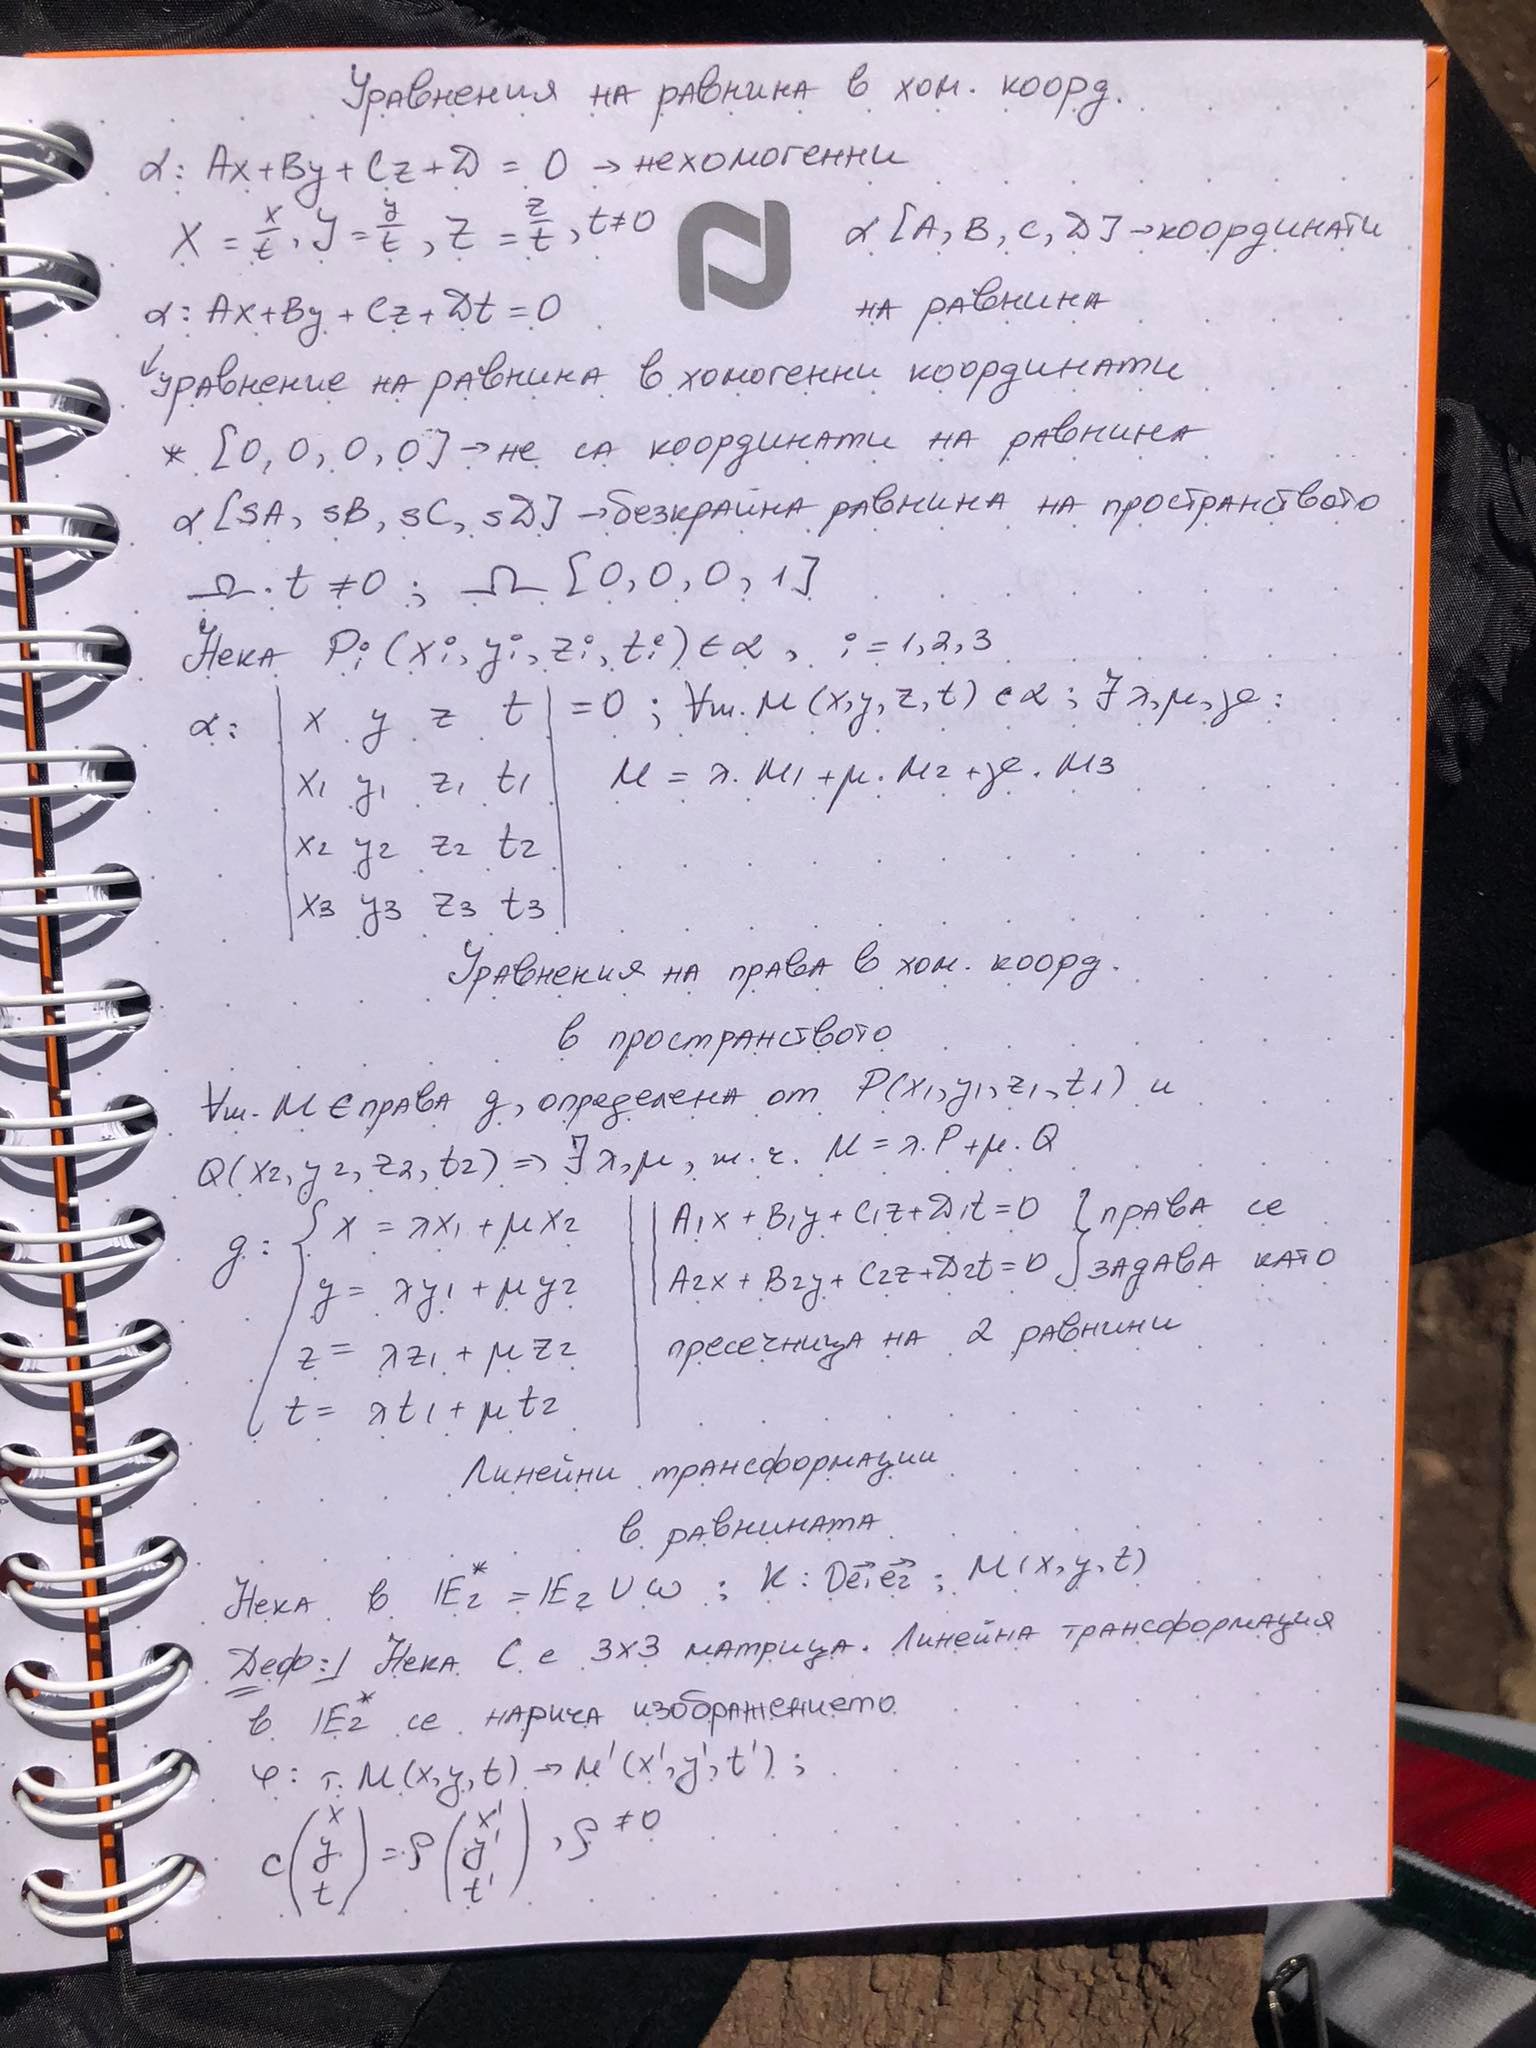 Уравнения на равнина в хом. коорд.
α: Ax+By+Cz+D = 0 → нехомогенни
X = x/t, Y = y/t, Z = z/t, t≠0
α [A, B, C, D] → координати
на равнина
α: Ax+By+Cz+Dt = 0
↙ Уравнение на равнина в хомогенни координати
* [0, 0, 0, 0] → не са координати на равнина
α [sA, sB, sC, sD] → безкрайна равнина на пространството
Ω. t ≠ 0 ; Ω [0, 0, 0, 1]
Нека Pi (xi, yi, zi, ti) ∈ α, i = 1, 2, 3
α: | x y z t | = 0 ; ∀т. M (x, y, z, t) ∈ α ; ∃ λ, μ, :
| x1 y1 z1 t1 | M = λ. M1 + μ. M2 + . M3
| x2 y2 z2 t2 |
| x3 y3 z3 t3 |
Уравнения на права в хом. коорд.
в пространството
∀т. M ∈ права g, определена от P(x1, y1, z1, t1) и
Q(x2, y2, z2, t2) => ∃ λ, μ, т. ч. M = λ. P + μ. Q
g: { x = λx1 + μx2 | A1x + B1y + C1z + D1t = 0 } права се
y = λy1 + μy2 | A2x + B2y + C2z + D2t = 0 } задава като
z = λz1 + μz2 | пресечница на 2 равнини
t = λt1 + μt2
Линейни трансформации
в равнината
Нека в E2* = E2 ∪ ω ; K: Oe→1e→2 ; M(x, y, t)
Деф:| Нека C е 3x3 матрица. Линейна трансформация
в E2* се нарича изображението
φ: т. M(x, y, t) → M'(x', y', t') ;
C (x y t) = ρ (x' y' t') , ρ ≠ 0